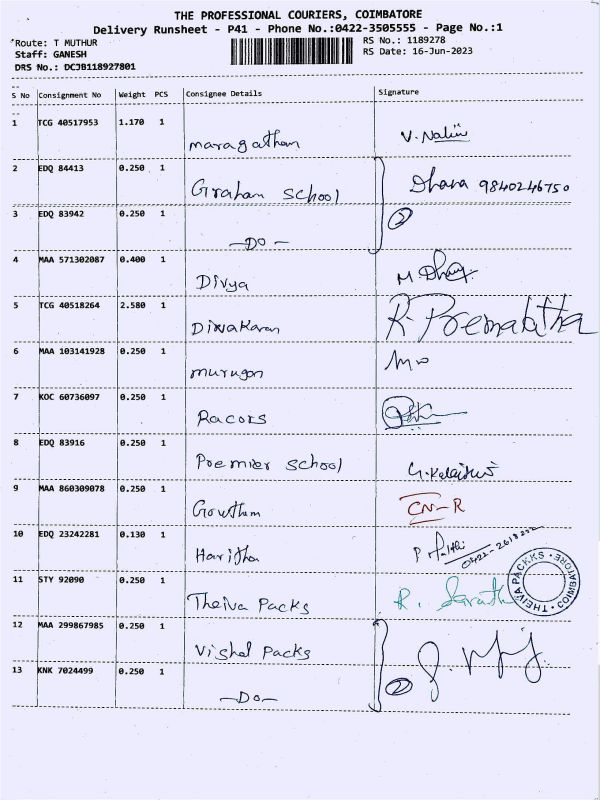 THE PROFESSIONAL COURIERS, COIMBATORE
Delivery Runsheet - P41 - Phone No.:0422-3505555 - Page No.:1
*Route: T MUTHUR
RS No.: 1189278
Staff: GANESH
RS Date: 16-Jun-2023
DRS No.: DCJB118927801
S No Consignment No Weight PCS Consignee Details Signature
1 TCG 40517953 1.170 1 maragatham V. Nalini
2 EDQ 84413 0.250 1 Graham School Dhana 9840246750
3 EDQ 83942 0.250 1 —DO— 2
4 MAA 571302087 0.400 1 Divya
5 TCG 40518264 2.580 1 Diwakaran R. Premalatha
6 MAA 103141928 0.250 1 murugan
7 KOC 60736097 0.250 1 Racors
8 EDQ 83916 0.250 1 Premier School
9 MAA 860309078 0.250 1 Gowtham CN-R
10 EDQ 23242281 0.130 1 Haritha
11 STY 92090 0.250 1 Theiva Packs R. Sarath
THEIVA PACKKS COIMBATORE
12 MAA 299867985 0.250 1 Vishal Packs
13 KNK 7024499 0.250 1 —DO— 2